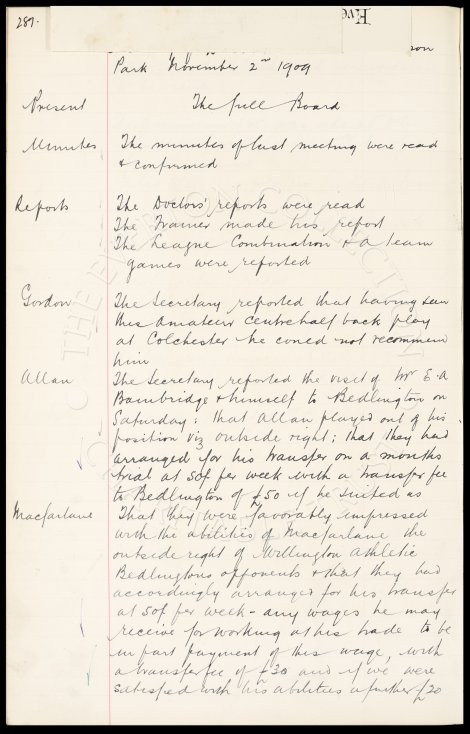 287.
Eve
Park November 2nd 1909
Present The full Board
Minutes The minutes of last meeting were read
& confirmed
Reports The Doctors' reports were read
The Trainer made his report
The League Combination & A team
games were reported
Gordon The Secretary reported that having seen
this Amateur centre half back play
at Colchester he could not recommend
him
Allan The Secretary reported the visit of Mr E. A
Bainbridge & himself to Bedlington on
Saturday: that Allan played out of his
position viz outside right; that they had
arranged for his transfer on a months
trial at 50/- per week with a transfer fee
to Bedlington of £50 if he suited us
Macfarlane That they were favorably impressed
with the abilities of Macfarlane the
outside right of Willington Athletic
Bedlingtons opponents & that they had
accordingly arranged for his transfer
at 50/- per week - any wages he may
receive for working at his trade to be
in part payment of this wage, with
a transfer fee of £30 and if we were
satisfied with his abilities a further £20